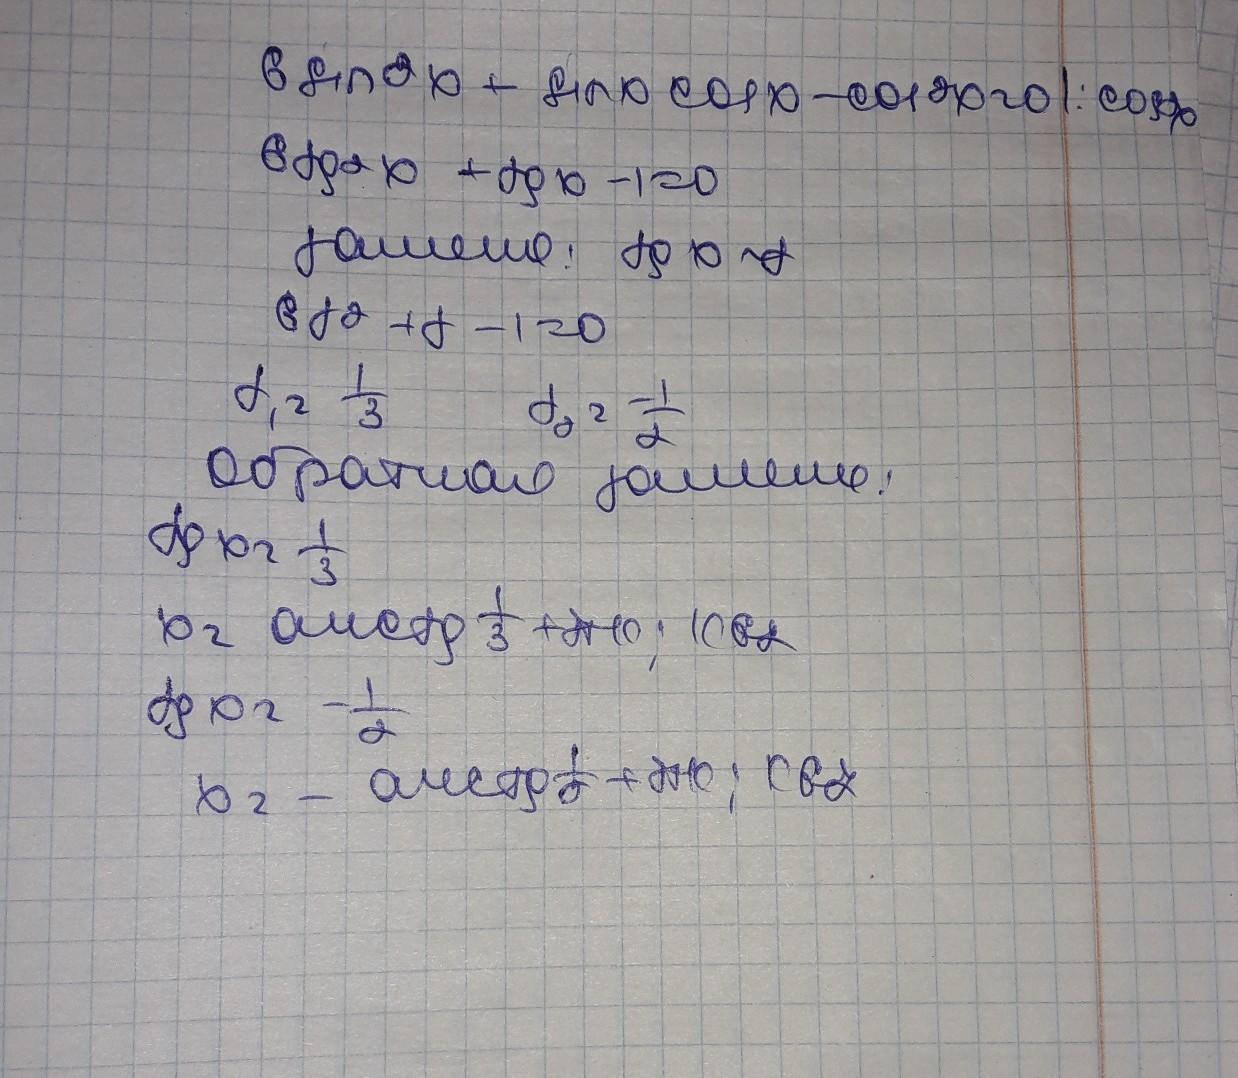 6 sin2x + sinx cosx - cos2x=0 |: cosx
6tg2x + tgx -1=0
замена: tg x = t
6t2 + t - 1=0
t1 = 1/3 t2 = -1/2
Обратная замена:
tg x = 1/3
x = arctg 1/3 + πk; k∈Z
tg x = -1/2
x = - arctg 1/2 + πk; k∈Z